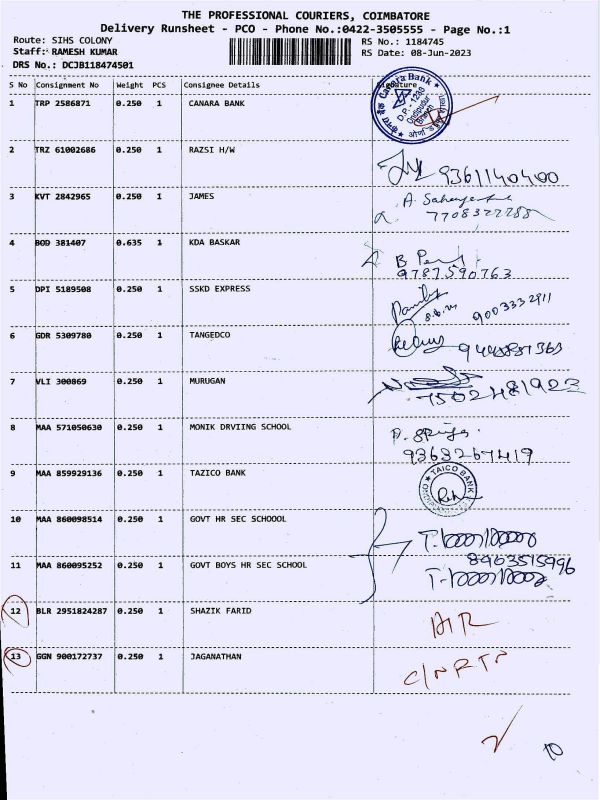 THE PROFESSIONAL COURIERS, COIMBATORE
Delivery Runsheet - PCO - Phone No.:0422-3505555 - Page No.:1
Route: SIHS COLONY
RS No.: 1184745
Staff: RAMESH KUMAR
RS Date: 08-Jun-2023
DRS No.: DCJB118474501
S No Consignment No Weight PCS Consignee Details Signature
1 TRP 2586871 0.250 1 CANARA BANK
Canara Bank
D.P.-1238
Branch
2 TRZ 61002686 0.250 1 RAZSI H/W
9361140400
3 KVT 2842965 0.250 1 JAMES
A.
7708322288
4 BOD 381407 0.635 1 KDA BASKAR
B
9787590763
5 DPI 5189508 0.250 1 SSKD EXPRESS
9003332911
6 GDR 5309780 0.250 1 TANGEDCO
7 VLI 300869 0.250 1 MURUGAN
7502481923
8 MAA 571050630 0.250 1 MONIK DRVIING SCHOOL
9363267419
9 MAA 859929136 0.250 1 TAZICO BANK
TAICO BANK
10 MAA 860098514 0.250 1 GOVT HR SEC SCHOOOL
11 MAA 860095252 0.250 1 GOVT BOYS HR SEC SCHOOL
8903515996
12 BLR 2951824287 0.250 1 SHAZIK FARID
13 GGN 900172737 0.250 1 JAGANATHAN
10